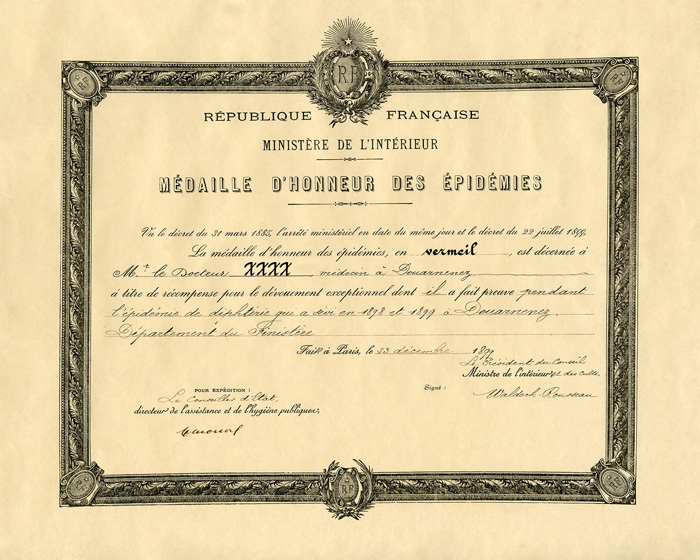 RF
RF RF
RÉPUBLIQUE FRANÇAISE
MINISTÈRE DE L'INTÉRIEUR
MÉDAILLE D'HONNEUR DES ÉPIDÉMIES
Vu le décret du 31 mars 1885, l'arrêté ministériel en date du même jour et le décret du 22 juillet 1899,
La médaille d'honneur des épidémies, en vermeil, est décernée à
M.r le Docteur XXXX médecin à Douarnenez
à titre de récompense pour le dévouement exceptionnel dont il a fait preuve pendant
l'épidémie de diphtérie qui a sévi en 1898 et 1899 à Douarnenez
Département du Finistère
Fait à Paris, le 23 décembre 1899
Le Président du Conseil
Ministre de l'intérieur et des Cultes
POUR EXPÉDITION :
Signé :
Waldeck-Rousseau
Le Conseiller d'État,
directeur de l'assistance et de l'hygiène publiques,
RF RF RF